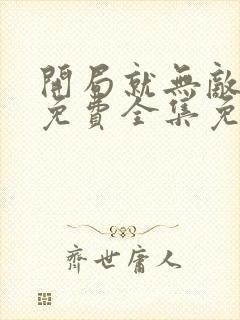 開局就無敵
免費全集免
齊世庸人